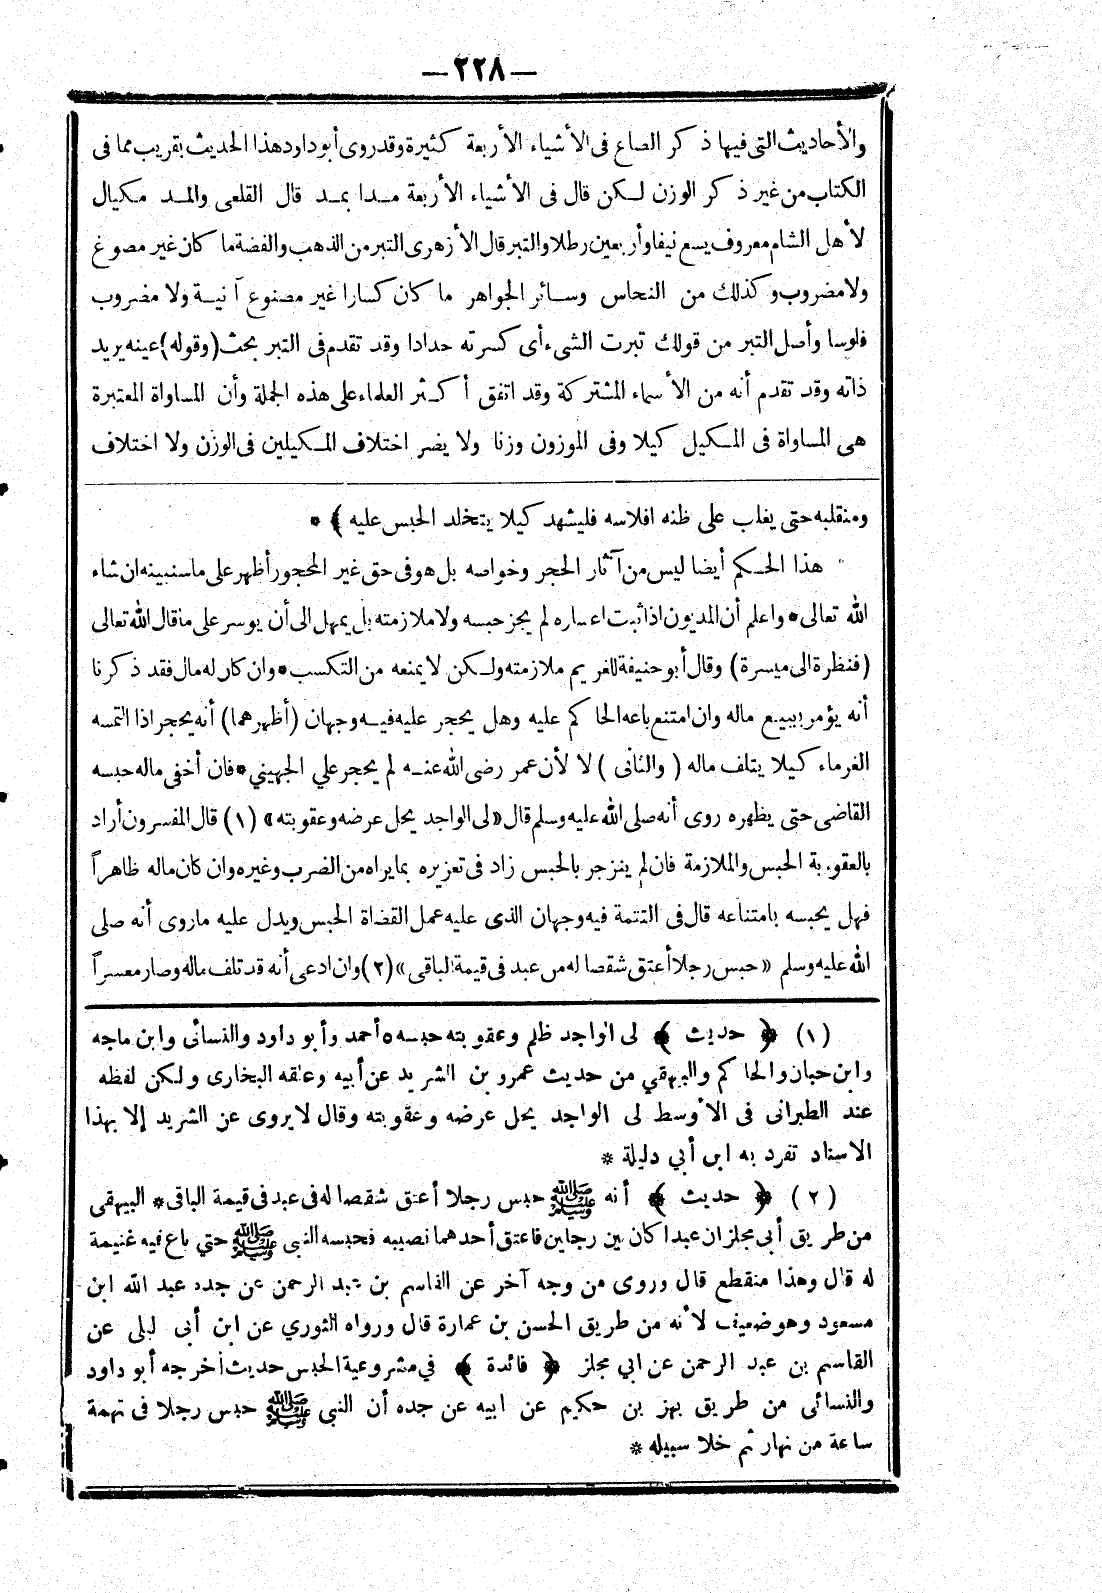 —٢٢٨—
والأحاديث التى فيها ذكر الصاع فى الأشياء الأربعة كثيرة وقد روى أبو داود هذا الحديث بقريب مما فى
الكتاب من غير ذكر الوزن لكن قال فى الأشياء الأربعة مدا بمد قال القلعى والمد مكيال
لأهل الشام معروف يسع نيفا وأربعين رطلا والتبر قال الأزهرى التبر من الذهب والفضة ما كان غير مصوغ
ولا مضروب وكذلك من النحاس وسائر الجواهر ما كان كسارا غير مصنوع آنية ولا مضروب
فلوسا وأصل التبر من قولك تبرت الشىء أى كسرته حدادا وقد تقدم فى التبر بحث (وقوله) عينه يريد
ذاته وقد تقدم أنه من الأسماء المشتركة وقد اتفق أكثر العلماء على هذه الجملة وأن المساواة المعتبرة
هى المساواة فى المكيل كيلا وفى الموزون وزنا ولا يضر اختلاف المكيلين فى الوزن ولا اختلاف
ومنقلبه حتى يغلب على ظنه افلاسه فليشهد كيلا يتخلد الحبس عليه ﴾ *
هذا الحكم أيضا ليس من آثار الحجر وخواصه بل هو فى حق غير المحجور أظهر على ما سنبينه ان شاء
الله تعالى * واعلم أن المديون اذا ثبت اعساره لم يجز حبسه ولا ملازمته بل يمهل الى أن يوسر على ما قال الله تعالى
(فنظرة الى ميسرة) وقال أبو حنيفة للغريم ملازمته ولكن لا يمنعه من التكسب * وان كان له مال فقد ذكرنا
أنه يؤمر ببيع ماله وان امتنع باعه الحاكم عليه وهل يحجر عليه فيه وجهان (أظهرهما) أنه يحجر اذا التمسه
الغرماء كيلا يتلف ماله ( والثانى ) لا لأن عمر رضى الله عنه لم يحجر علي الجهيني * فان أخفى ماله حبسه
القاضى حتى يظهره روى أنه صلى الله عليه وسلم قال «لى الواجد يحل عرضه وعقوبته» (١) قال المفسرون أراد
بالعقوبة الحبس والملازمة فان لم ينزجر بالحبس زاد فى تعزيره بما يراه من الضرب وغيره وان كان ماله ظاهراً
فهل يحبسه بامتناعه قال فى التتمة فيه وجهان الذى عليه عمل القضاة الحبس ويدل عليه ما روى أنه صلى
الله عليه وسلم «حبس رجلا أعتق شقصا له من عبد فى قيمة الباقى» (٢) وان ادعى أنه قد تلف ماله وصار معسراً
(١) ﴿ حديث ﴾ لى الواجد ظلم وعقوبته حبسه ٥ أحمد وأبو داود والنسائى وابن ماجه
وابن حبان والحاكم والبيهقي من حديث عمرو بن الشريد عن أبيه وعلقه البخارى ولكن لفظه
عند الطبرانى فى الأوسط لى الواجد يحل عرضه وعقوبته وقال لا يروى عن الشريد إلا بهذا
الاسناد تفرد به ابن أبي دليلة *
(٢) ﴿ حديث ﴾ أنه ﷺ حبس رجلا أعتق شقصا له فى عبد فى قيمة الباقى * البيهقى
من طريق أبى مجلز ان عبدا كان بين رجلين فاعتق أحدهما نصيبه فحبسه النبى ﷺ حتي باع فيه غنيمة
له قال وهذا منقطع قال وروى من وجه آخر عن القاسم بن عبد الرحمن عن جده عبد الله ابن
مسعود وهو ضعيف لأنه من طريق الحسن بن عمارة قال ورواه الثوري عن ابن أبى ليلى عن
القاسم بن عبد الرحمن عن ابي مجلز ﴿ فائدة ﴾ في مشروعية الحبس حديث أخرجه أبو داود
والنسائى من طريق بهز بن حكيم عن ابيه عن جده أن النبى ﷺ حبس رجلا فى تهمة
ساعة من نهار ثم خلا سبيله *